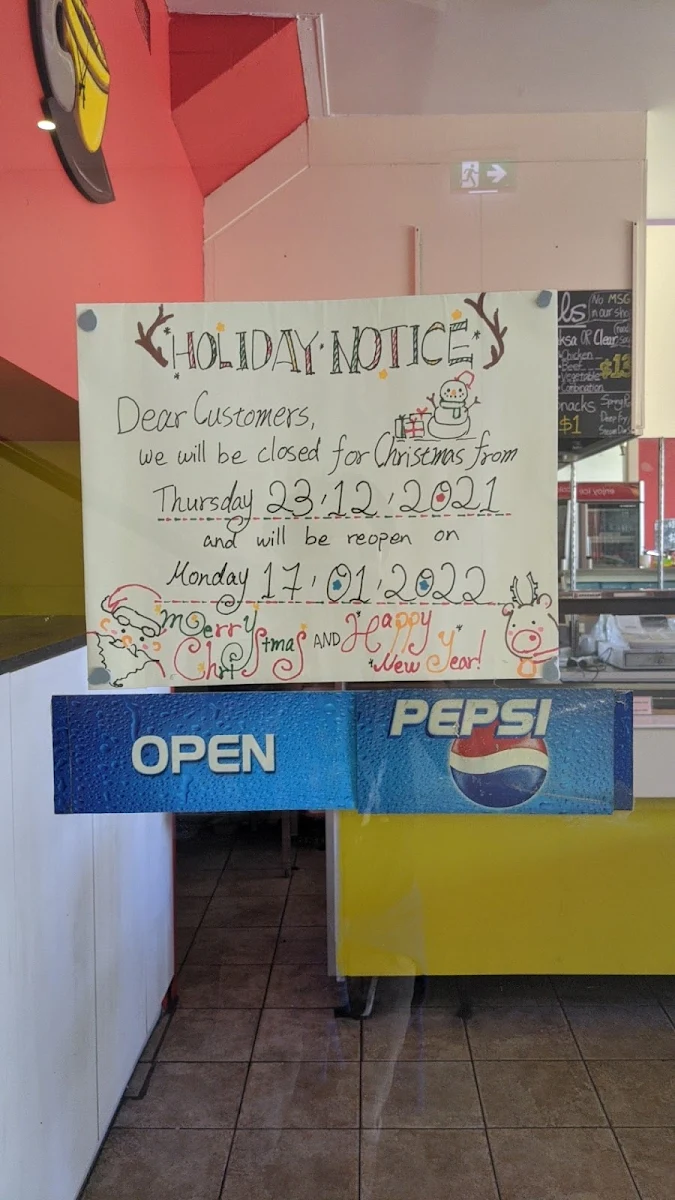 HOLIDAY NOTICE
Dear Customers,
we will be closed for Christmas from
Thursday 23.12.2021
and will be reopen on
Monday 17.01.2022
Merry Christmas AND Happy New Year!
OPEN
PEPSI
No MSG
in our
Clear
Chicken
Beef
Vegetable
Combination
$1